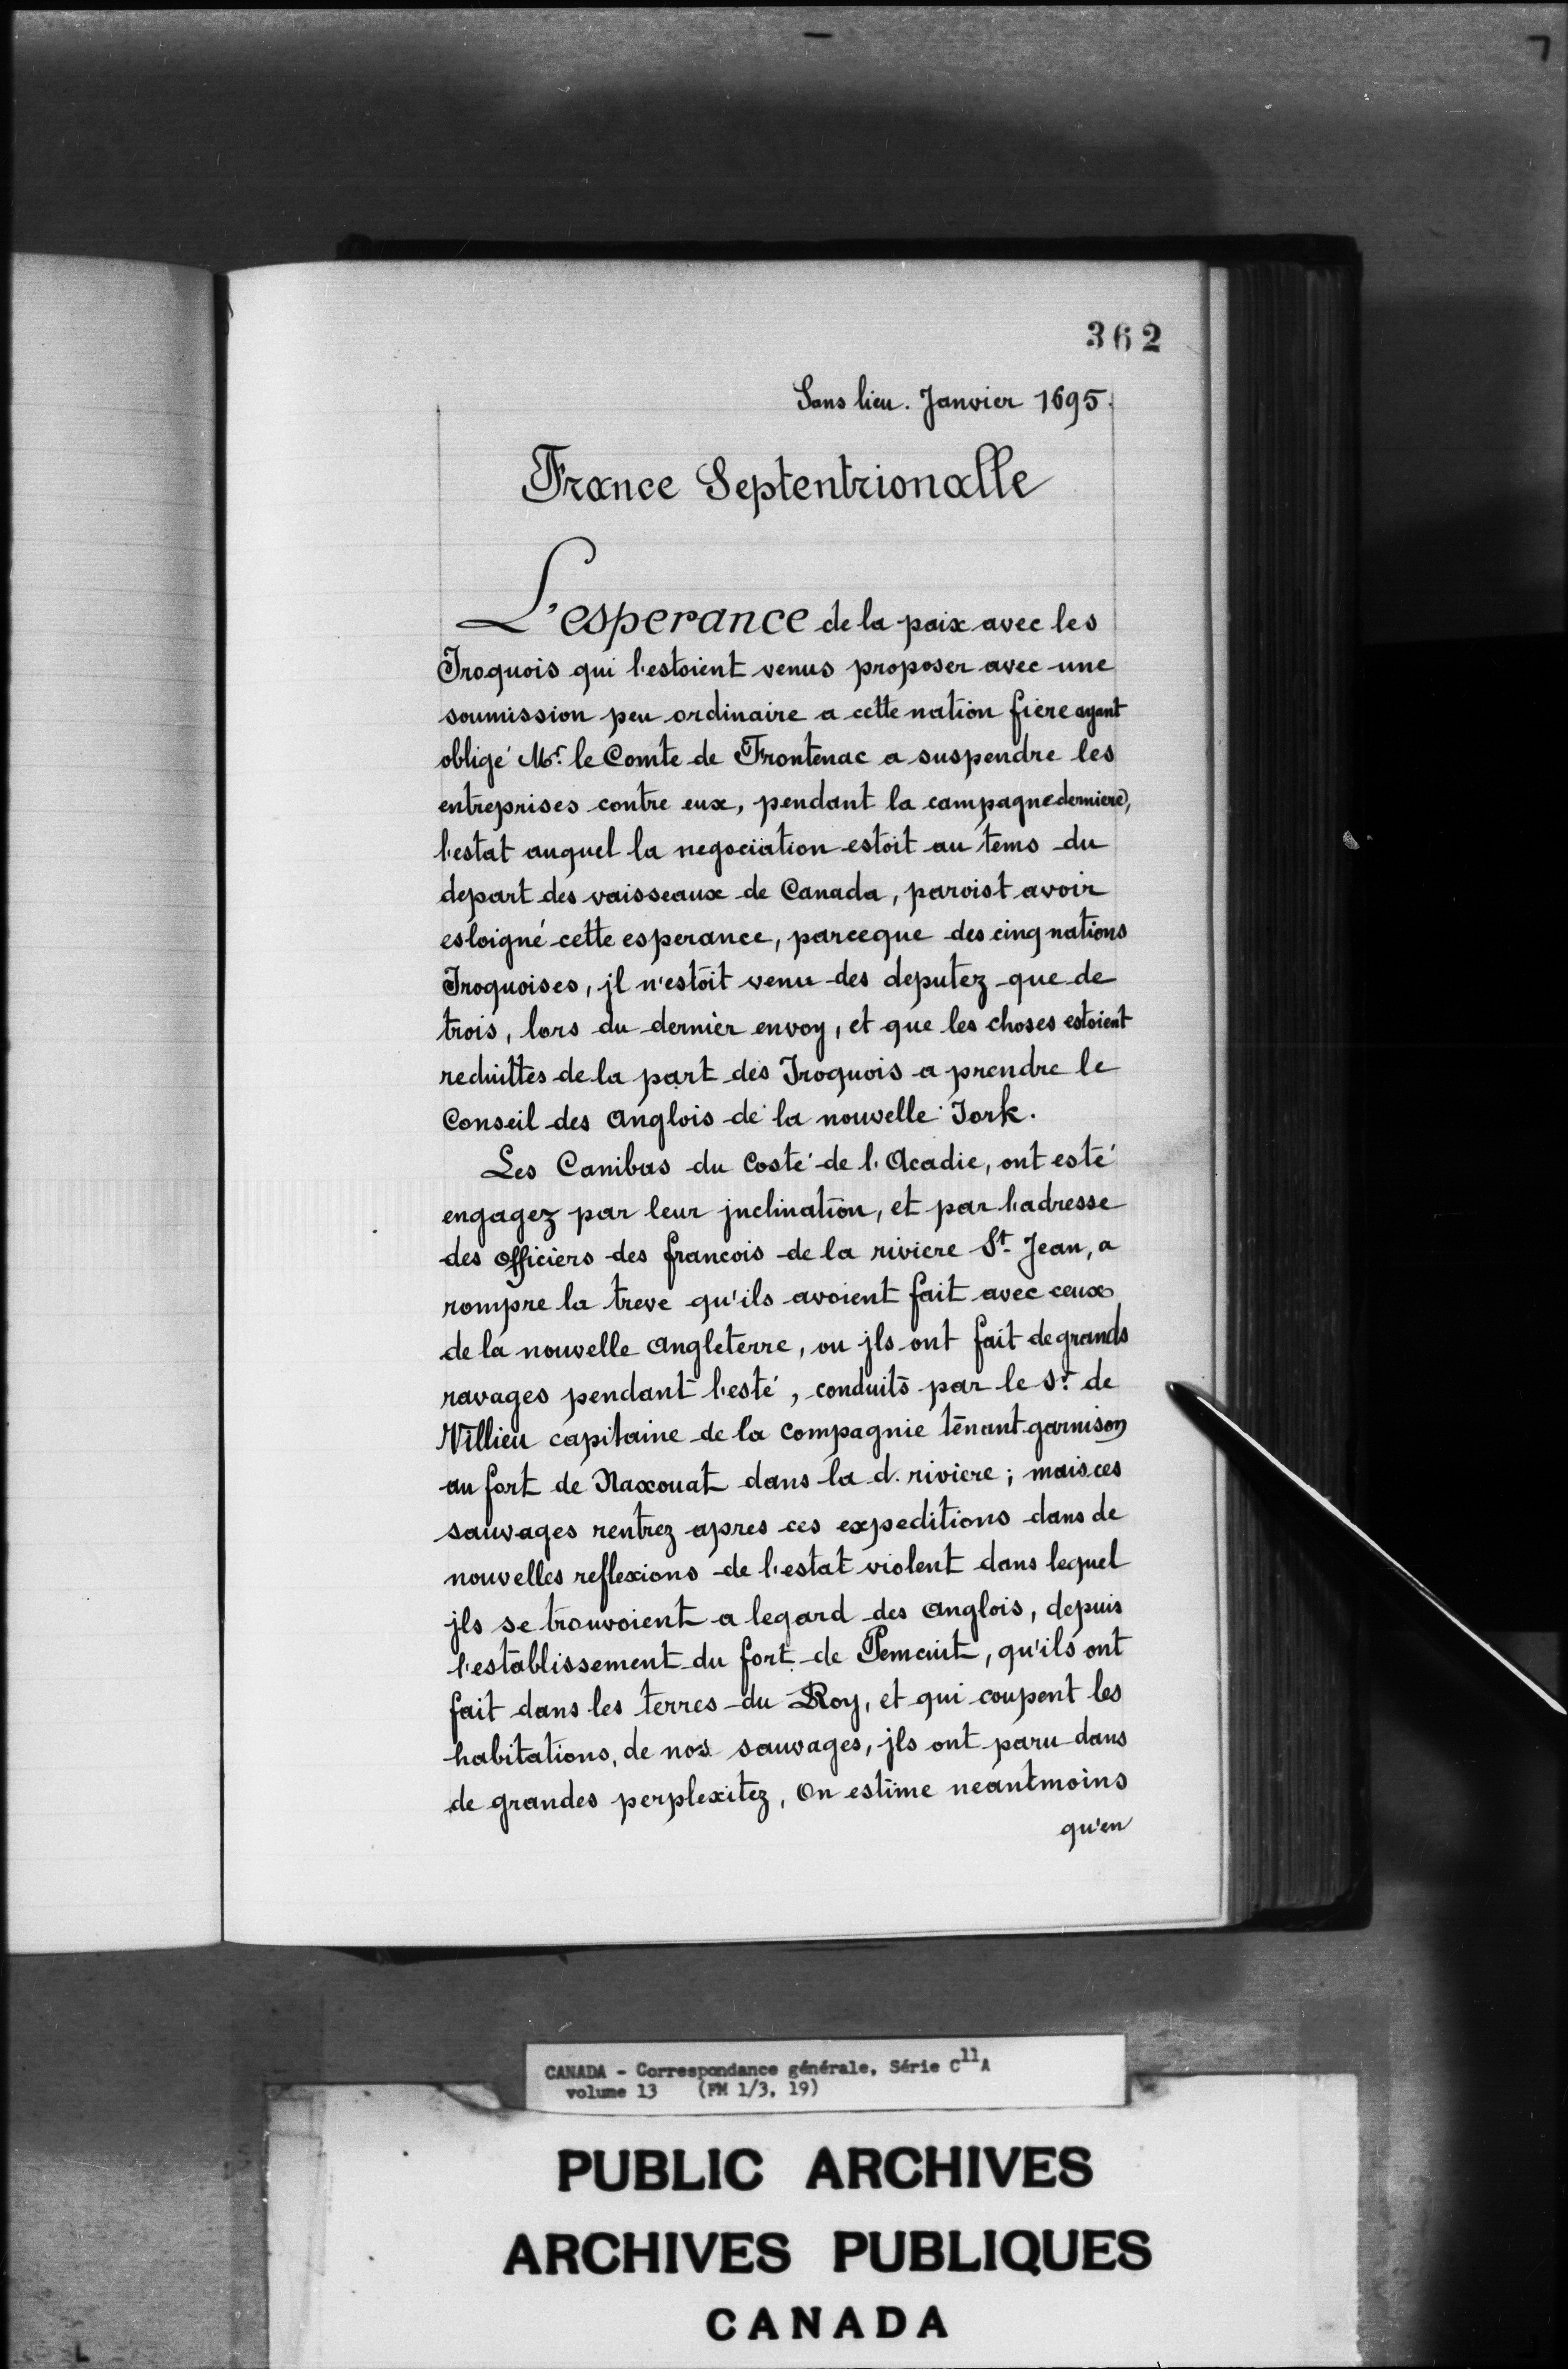 362
Sans lieu. Janvier 1695.
France Septentrionalle
L'esperance de la paix avec les
Iroquois qui l'estoient venus proposer avec une
soumission peu ordinaire a cette nation fiere ayant
obligé Mr. le Comte de Frontenac a suspendre les
entreprises contre eux, pendant la campagne derniere,
l'estat auquel la negociation estoit au tems du
depart des vaisseaux de Canada, paroist avoir
esloigné cette esperance, parceque des cinq nations
Iroquoises, jl n'estoit venu des deputez que de
trois, lors du dernier envoy, et que les choses estoient
reduittes de la part des Iroquois a prendre le
Conseil des anglois de la nouvelle Iork.
Les Canibas du Costé de l'Acadie, ont esté
engagez par leur jnclination, et par l'adresse
des officiers des francois de la riviere St. Jean, a
rompre la treve qu'ils avoient fait avec ceux
de la nouvelle angleterre, ou jls ont fait de grands
ravages pendant l'esté, conduits par le Sr. de
Villieu capitaine de la compagnie tenant garnison
au fort de Naxouat dans la d. riviere; mais ces
sauvages rentrez apres ces expeditions dans de
nouvelles reflexions de l'estat violent dans lequel
jls se trouvoient a legard des anglois, depuis
l'establissement du fort de Pemcuit, qu'ils ont
fait dans les terres du Roy, et qui coupent les
habitations, de nos sauvages, jls ont paru dans
de grandes perplexitez, On estime neantmoins
qu'en
CANADA - Correspondance générale, Série C11A
volume 13 (FM 1/3, 19)
PUBLIC ARCHIVES
ARCHIVES PUBLIQUES
CANADA